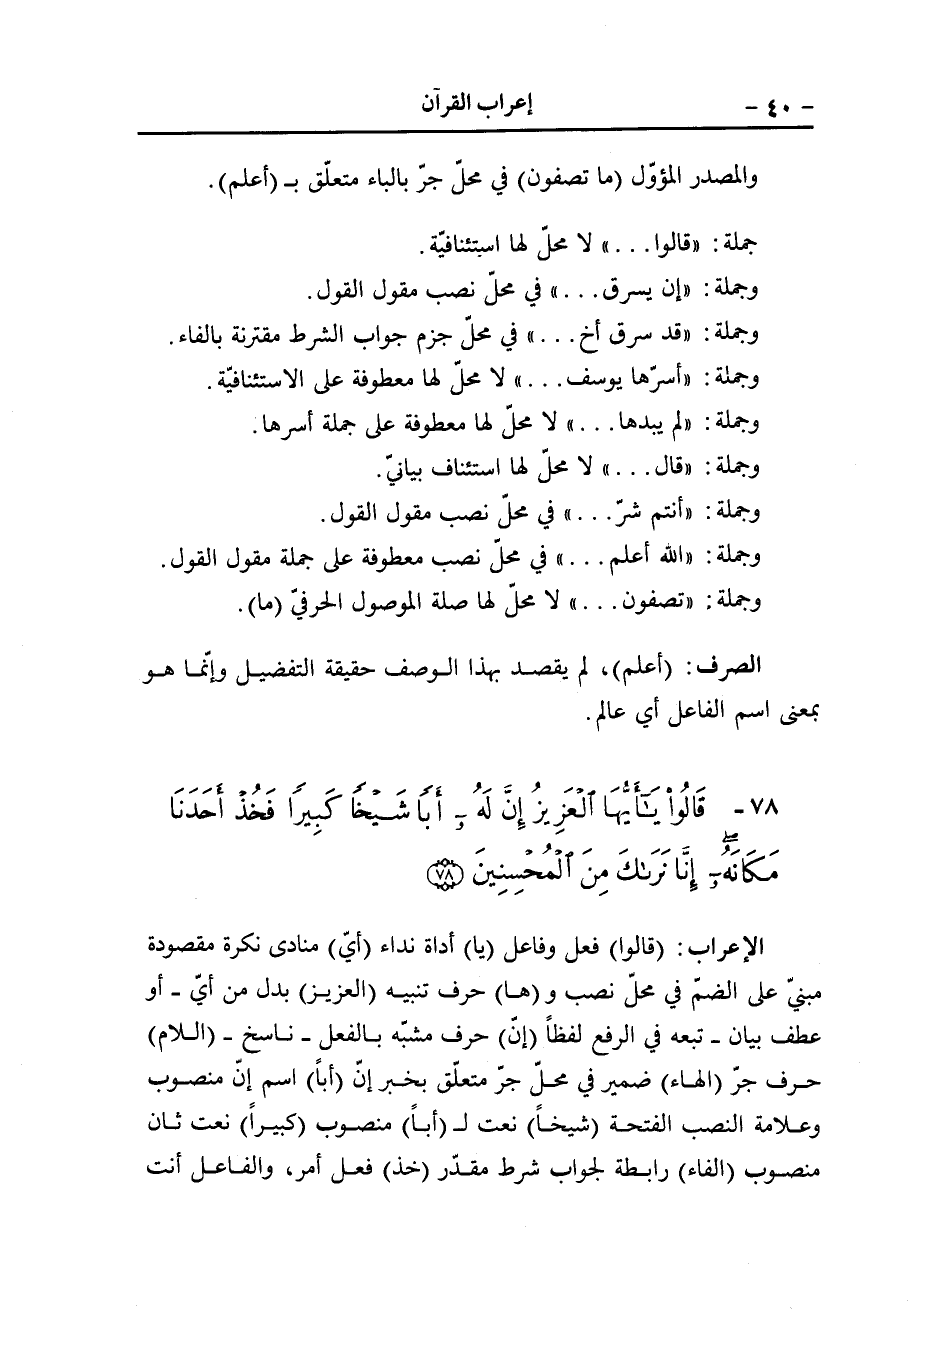 - ٤٠ - إعراب القرآن
والمصدر المؤوّل (ما تصفون) في محلّ جرّ بالباء متعلّق بـ (أعلم).
جملة: «قالوا...» لا محلّ لها استئنافيّة.
وجملة: «إن يسرق...» في محلّ نصب مقول القول.
وجملة: «قد سرق أخ...» في محلّ جزم جواب الشرط مقترنة بالفاء.
وجملة: «أسرّها يوسف...» لا محلّ لها معطوفة على الاستئنافيّة.
وجملة: «لم يبدها...» لا محلّ لها معطوفة على جملة أسرها.
وجملة: «قال...» لا محلّ لها استئناف بيانيّ.
وجملة: «أنتم شرّ...» في محلّ نصب مقول القول.
وجملة: «الله أعلم...» في محلّ نصب معطوفة على جملة مقول القول.
وجملة: «تصفون...» لا محلّ لها صلة الموصول الحرفيّ (ما).
الصرف: (أعلم)، لم يقصد بهذا الوصف حقيقة التفضيل وإنّما هو
بمعنى اسم الفاعل أي عالم.
٧٨ - قَالُوا۟ يَـٰٓأَيُّهَا ٱلْعَزِيزُ إِنَّ لَهُۥٓ أَبًا شَيْخًا كَبِيرًا فَخُذْ أَحَدَنَا
مَكَانَهُۥٓ ۖ إِنَّا نَرَىٰكَ مِنَ ٱلْمُحْسِنِينَ ﴿٧٨﴾
الإعراب: (قالوا) فعل وفاعل (يا) أداة نداء (أيّ) منادى نكرة مقصودة
مبنيّ على الضمّ في محلّ نصب و (ها) حرف تنبيه (العزيز) بدل من أيّ - أو
عطف بيان - تبعه في الرفع لفظاً (إنّ) حرف مشبّه بالفعل - ناسخ - (اللام)
حرف جرّ (الهاء) ضمير في محلّ جرّ متعلّق بخبر إنّ (أباً) اسم إنّ منصوب
وعلامة النصب الفتحة (شيخاً) نعت لـ (أباً) منصوب (كبيراً) نعت ثان
منصوب (الفاء) رابطة لجواب شرط مقدّر (خذ) فعل أمر، والفاعل أنت